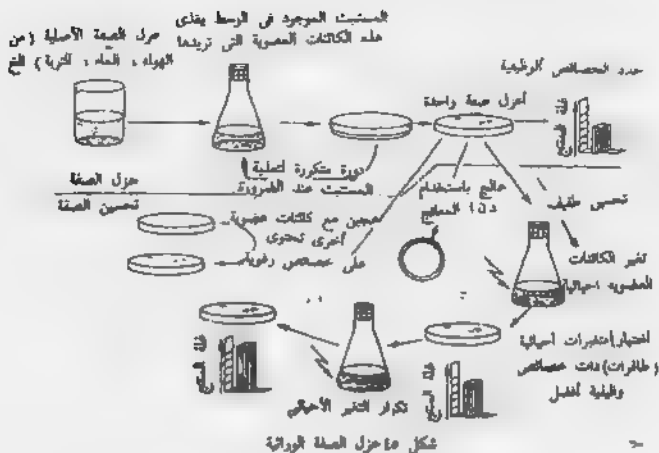 عزل الصفة الأصلية (من
الهواء، الماء، التربة) الخ
المستنبت الموجود في الوسط يغذى
هذه الكائنات العضوية التي تريدها
أعزل صفة واحدة
حدد الخصائص الوظيفية
دورة متكررة لعملية
المستنبت عند الضرورة
عزل الصفة
تحسين الصفة
هجين مع كائنات عضوية
أخرى تحتوى
على خصائص رغوية
عالج باستخدام
المعالج
تحسين طفيف
تغير الكائنات
العضوية احيائيا
اختيار متغيرات أحيائية
(طافرات) ذات خصائص
وظيفية أفضل
تكرار التغير الأحيائي
شكل ٤٥ عزل الصفة الوراثية